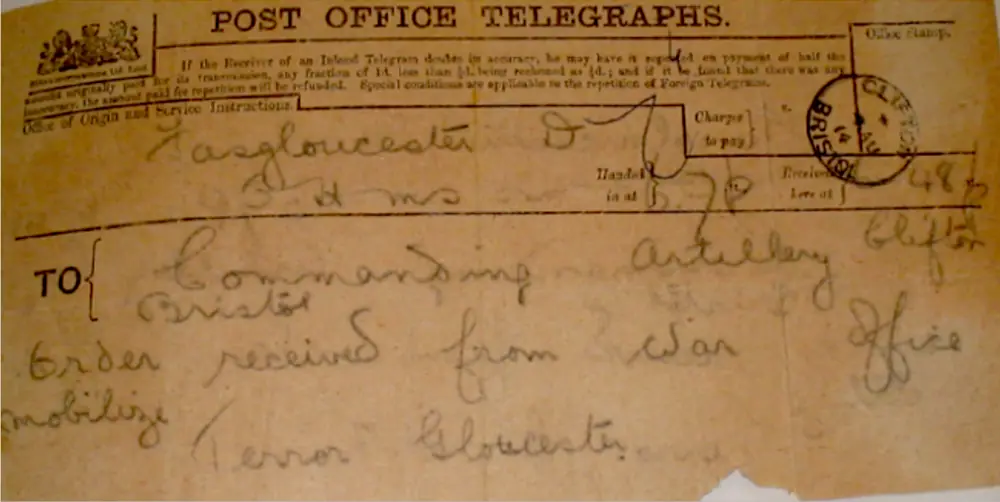 POST OFFICE TELEGRAPHS.
If the Receiver of an Inland Telegram doubts its accuracy, he may have it repeated on payment of half the
amount originally paid for its transmission, any fraction of 1d. less than ½d. being reckoned as ½d.; and if it be found that there was any
inaccuracy, the amount paid for repetition will be refunded. Special conditions are applicable to the repetition of Foreign Telegrams.
Office Stamp.
Office of Origin and Service Instructions.
Charges
to pay
Handed
in at
Received
here at
CLIFTON
BRISTOL
AU
14
O H M S
48
TO
Commanding Artillery Clifton
Bristol
Order received from War Office
mobilize
Terror Gloucester